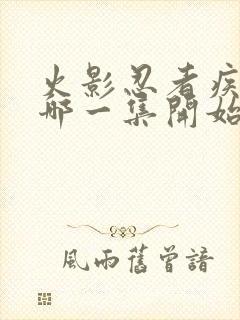 火影忍者疾
哪一集開始
風雨舊曾諳